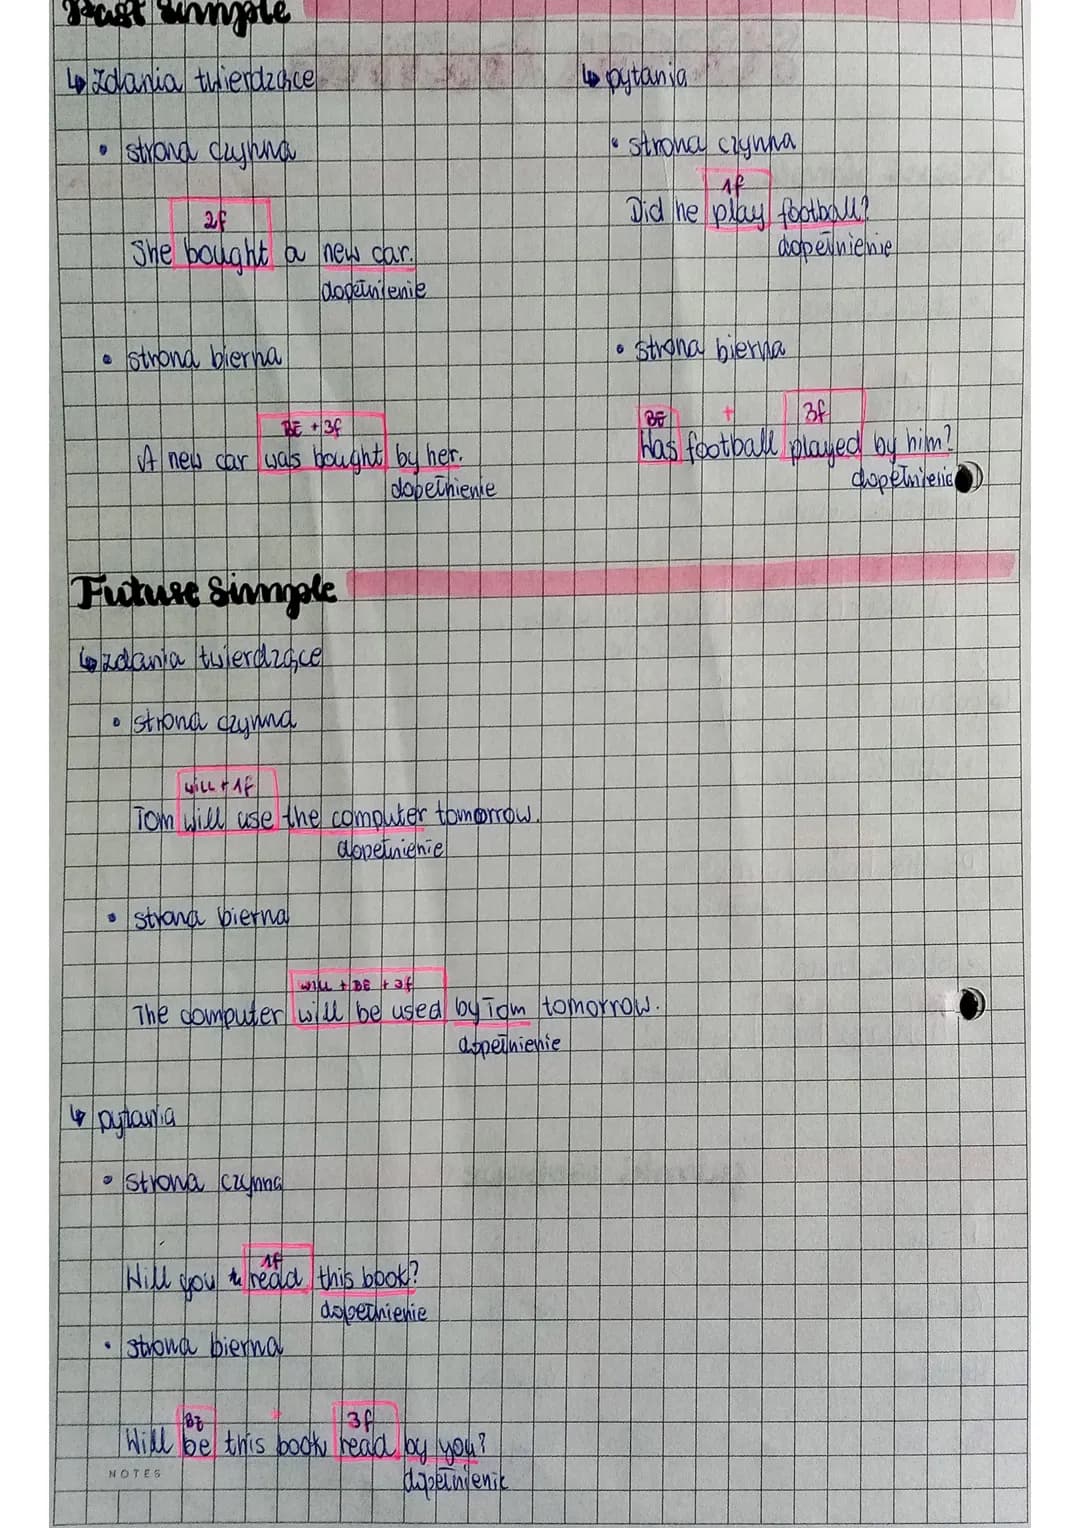 Past Simple
↳ zdania twierdzące
• strona czynna
2f
She bought a new car.
dopełnienie
• strona bierna
BE + 3f
A new car was bought by her.
dopełnienie
↳ pytania
• strona czynna
1f
Did he play football?
dopełnienie
• strona bierna
BE + 3f
Was football played by him?
dopełnienie
Future Simple
↳ zdania twierdzące
• strona czynna
will + 1f
Tom will use the computer tomorrow.
dopełnienie
• strona bierna
will + BE + 3f
The computer will be used by Tom tomorrow.
dopełnienie
↳ pytania
• strona czynna
1f
Will you read this book?
dopełnienie
• strona bierna
BE + 3f
Will be this book read by you?
dopełnienie
NOTES